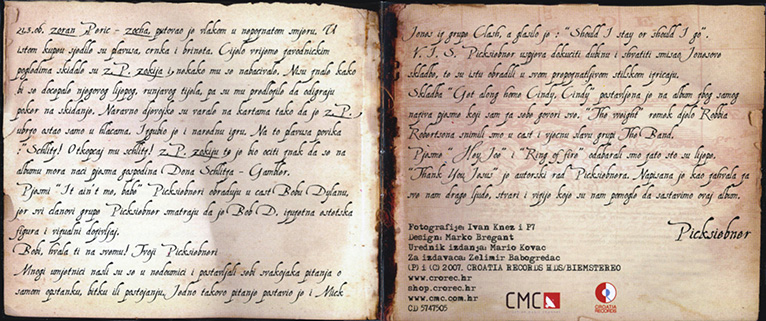 21.3.06. zoran Peric - zocha, putovao je vlakom u nepoznatom smjeru. U
istom kupeu sjedile su plavusa, crnka i brineta. Cijelo vrijeme zavodnickim
pogledima skidale su z.P. zokija i nekako mu se nabacivale. Nisu znale kako
bi se docepale njegovog lijepog, runjavog tijela, pa su mu predlozile da odigraju
poker na skidanje. Naravno djevojke su varale na kartama tako da je z.P.
ubrzo ostao samo u hlacama. Izgubio je i narednu igru. Na to plavusa povika
: "Schlitz! Otkopcaj mu schlitz! z.P. zokiju to je bio ociti znak da se na
albumu mora naci pjesma gospodina Dona Schlitza - Gambler.
Pjesmu "It ain't me, babe" Picksiebneri obraduju u cast Bobu Dylanu,
jer svi clanovi grupe Picksiebner smatraju da je Bob D. izuzetna estetska
figura i vizualni dozivljaj.
Bobi, hvala ti na svemu! Tvoji Picksiebneri
Mnogi umjetnici nasli su se u nedoumici i postavljali sebi svakojaka pitanja o
samom opstanku, bitku ili postojanju. Jedno takovo pitanje postavio je i Mick
Jones iz grupe Clash, a glasilo je : "Should I stay or should I go".
V.I.S. Picksiebner uspjeva dokuciti dubinu i shvatiti smisao Jonesove
skladbe, te su istu obradili u svom prepoznatljivom stilskom izricaju.
Skladba "Get along home Cindy, Cindy" postavljena je na album zbog samog
naziva pjesme koji sam za sebe govori sve. "The weight" remek djelo Robbia
Robertsona snimili smo u cast i vjecnu slavu grupi The Band.
Pjesme "Hey Joe" i "Ring of fire" odabrali smo zato sto su lijepe.
"Thank Hey Jesus" je autorski rad Picksiebnera. Napisana je kao zahvala za
sve nam drage ljude, stvari i vizije koje su nam pomogle da sastavimo ovaj album.
Picksiebner
Fotografije: Ivan Knez i P7
Design: Marko Bregant
Urednik izdanja: Mario Kovac
Za izdavaca: Zelimir Babogredac
(P) i (C) 2007. CROATIA RECORDS H.DS/BIEMSTEREO
www.crorec.hr
shop.crorec.hr
www.cmc.com.hr
CD 5747505
CMC
CROATIA
RECORDS